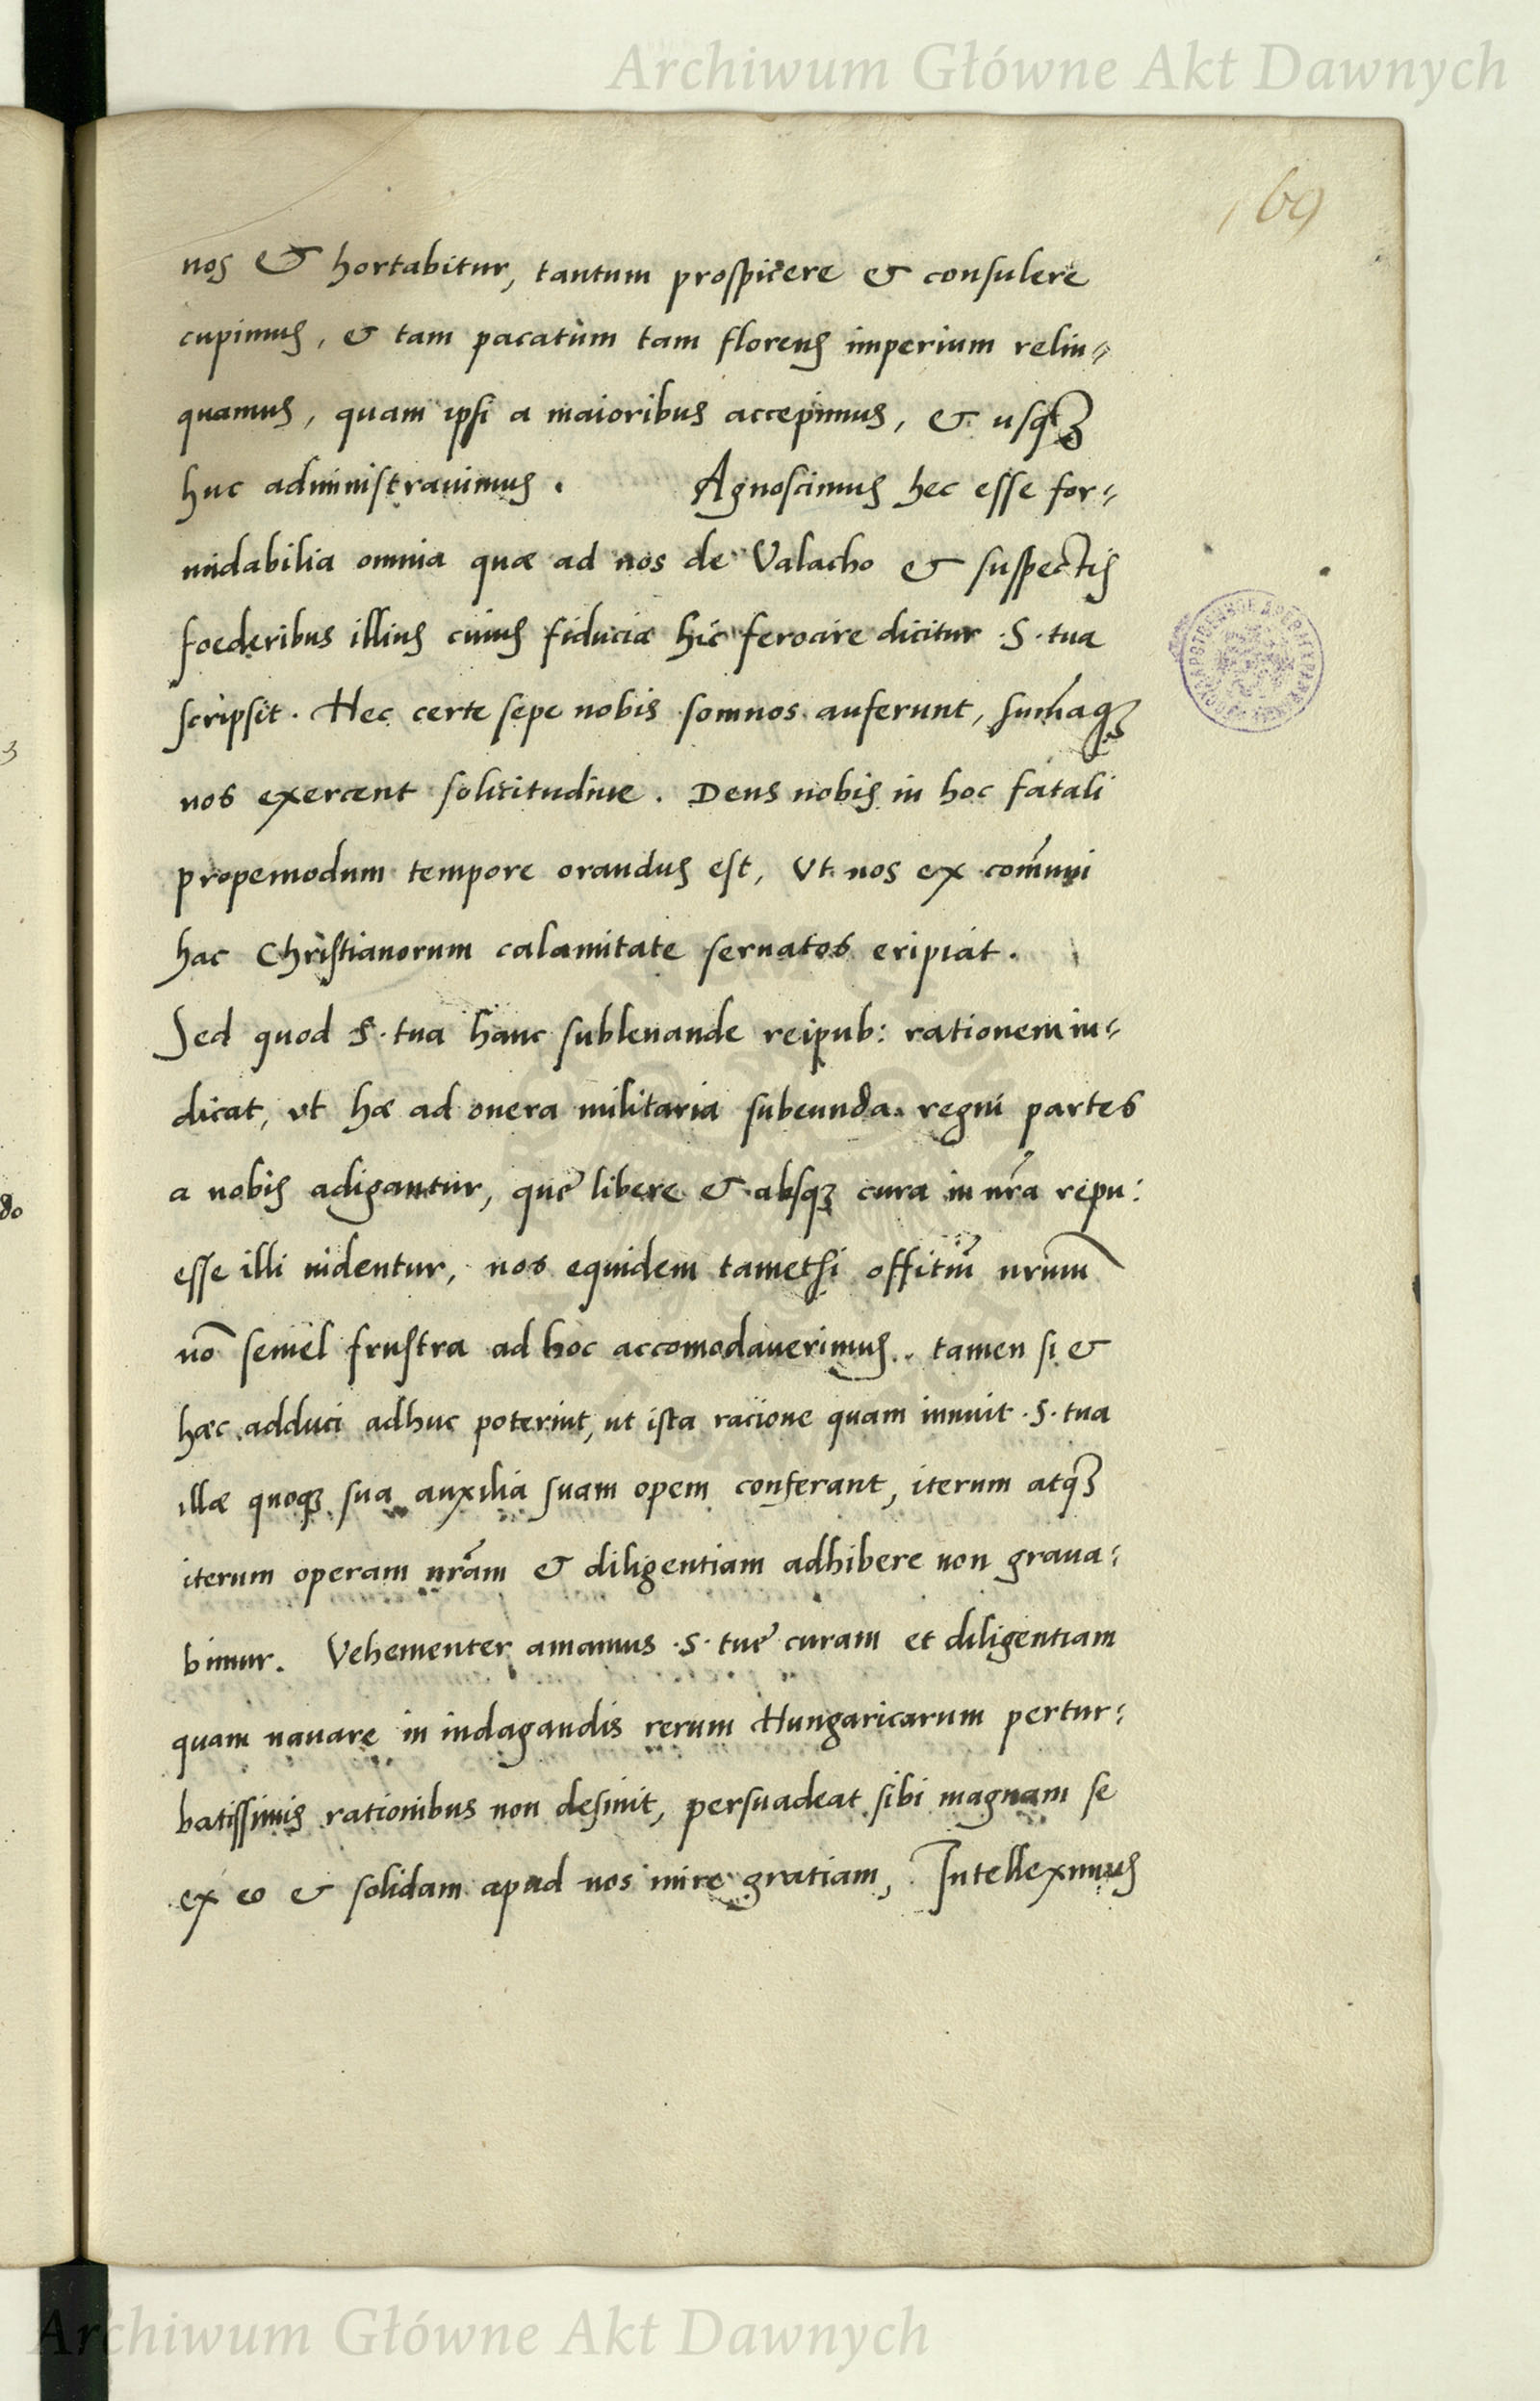 Archiwum Główne Akt Dawnych
169
nos & hortabitur, tantum prospicere & consulere
cupimus, & tam pacatum tam florens imperium relin⸗
quamus, quam ipsi a maioribus accepimus, & usqꝫ
huc administrauimus. Agnoscimus hec esse for⸗
midabilia omnia quæ ad nos de Valacho & suspectis
foederibus illius cuius fiducia hic ferocire dicitur .S. tua
scripsit. Hec certe sepe nobis somnos auferunt, sum̃aqꝫ
nos exercent solicitudine. Deus nobis in hoc fatali
propemodum tempore orandus est, Vt nos ex com̃uni
hac Christianorum calamitate seruatos eripiat.
Sed quod S. tua hanc subleuande reipub: rationem in⸗
dicat, vt hæ ad onera militaria subeunda regni partes
a nobis adigantur, quę libere & absqꝫ cura in nr̃a repu:
esse illi uidentur, nos equidem tametsi offitiũ nrũm
nõ semel frustra ad hoc accomodauerimus, tamen si &
hæc adduci adhuc poterint, ut ista racione quam innuit .S. tua
illæ quoqꝫ sua auxilia suam opem conferant, iterum atqꝫ
iterum operam nr̃am & diligentiam adhibere non graua⸗
bimur. Vehementer amamus .S. tuę curam et diligentiam
quam nauare in indagandis rerum Hungaricarum pertur⸗
batissimis rationibus non desinit, persuadeat sibi magnam se
ex eo & solidam apud nos inire gratiam, Intelleximus
Archiwum Główne Akt Dawnych